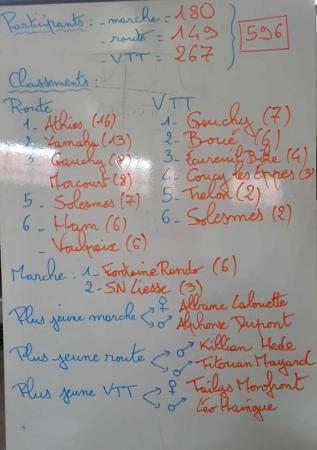 Participants : - marche = 180
- route = 149
- VTT = 267
596
Classements :
Route
1 - Athies (16)
2 - Yamaha (13)
3 - Gauchy (8)
Morcourt (8)
5 - Solesmes (7)
6 - Ham (6)
- Voulpaix (6)
VTT
1 - Gouchy (7)
2 - Boué (6)
3 - Ecureuil Brûlé (4)
4 - Coucy les Eppes (3)
5 - Trelon (2)
6 - Solesmes (2)
Marche : 1 - Fontaine Rando (6)
2 - SN Liesse (3)
Plus jeune marche ♀ Albane Calouette
♂ Alphonse Dupont
Plus jeune route ♂ Killian Mede
♂ Titouan Mayard
Plus jeune VTT ♀ Tailys Monfront
♂ Léo Haingue